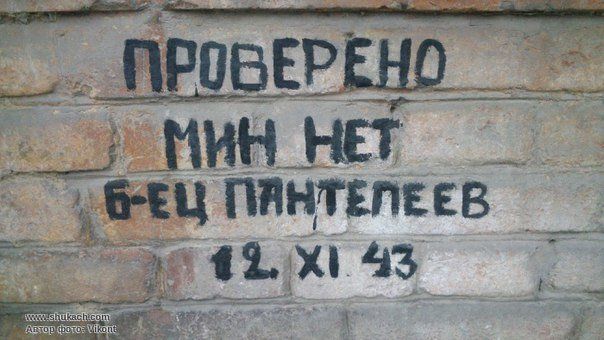 ПРОВЕРЕНО
МИН НЕТ
Б-ЕЦ ПАНТЕЛЕЕВ
12. XI. 43
www.shukach.com
Автор фото: Vikont